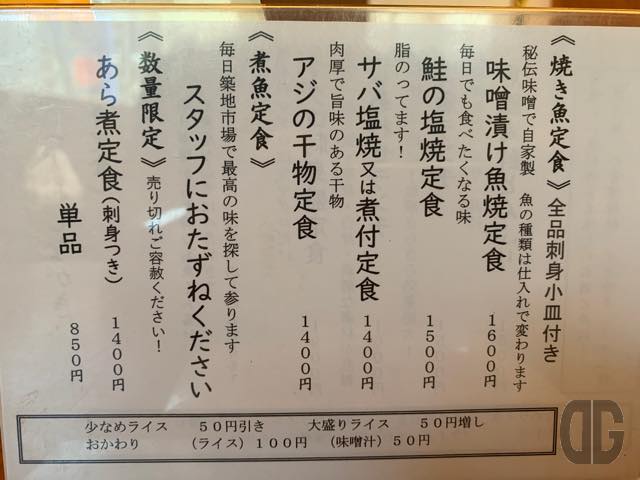 《焼き魚定食》全品刺身小皿付き
秘伝味噌で自家製　魚の種類は仕入れで変わります
味噌漬け魚焼定食　１６００円
毎日でも食べたくなる味
鮭の塩焼定食　１５００円
脂のってます！
サバ塩焼又は煮付定食　１４００円
肉厚で旨味のある干物
アジの干物定食　１４００円
《煮魚定食》
毎日築地市場で最高の味を探して参ります
スタッフにおたずねください
《数量限定》売り切れご容赦ください！
あら煮定食（刺身つき）　１４００円
単品　８５０円
少なめライス　５０円引き　大盛りライス　５０円増し
おかわり　（ライス）１００円　（味噌汁）５０円
DG